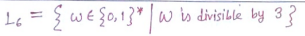 L₆ = { ω ∈ {0,1}* | ω is divisible by 3 }